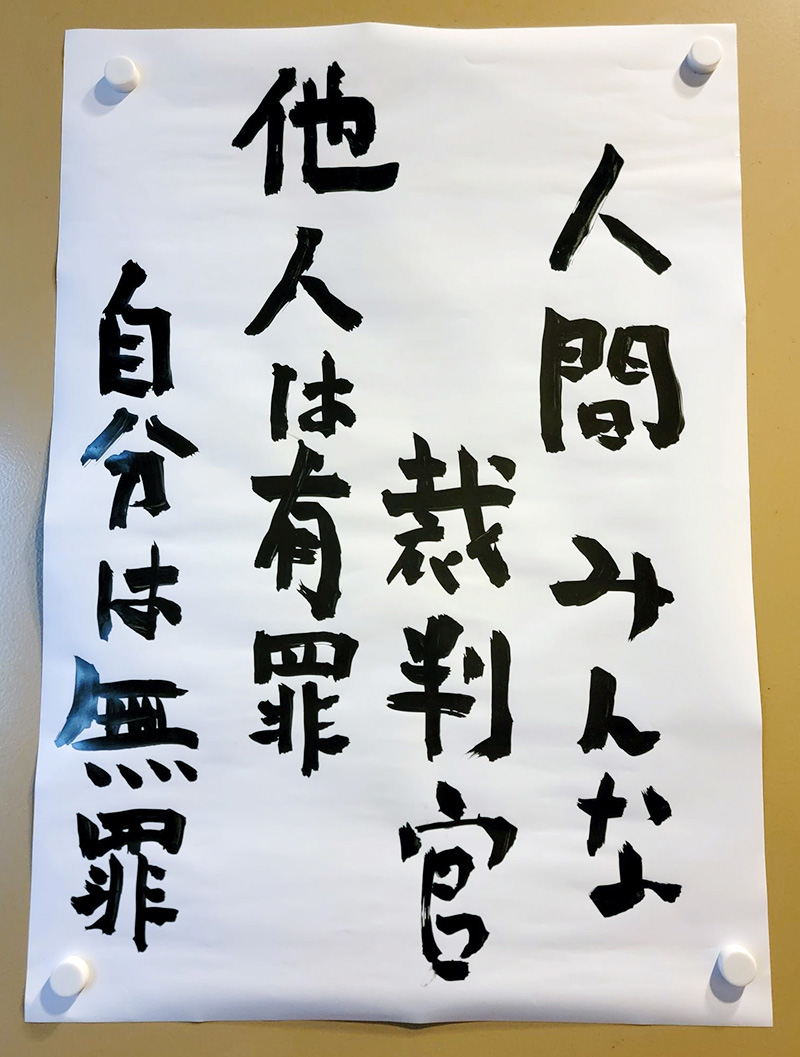 人間みんな
裁判官
他人は有罪
自分は無罪